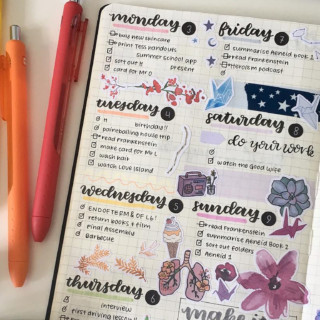 monday 3
buy new skincare
print tess handouts
summer school app
sort out present
card for Mr D
tuesday 4
birthday!!
paintballing house trip
read Frankenstein
make card for Mr L
wash hair
watch Love Island
wednesday 5
END OF TERM & OF L6!
return books + film
Final Assembly
Barbecue
thursday 6
interview
First driving lesson!
friday 7
summarise Aeneid Book 2
read Frankenstein
podcast
saturday 8
do your work
watch the Good Wife
sunday 9
read Frankenstein
summarise Aeneid Book 2
sort out folders
Aeneid 1
make it